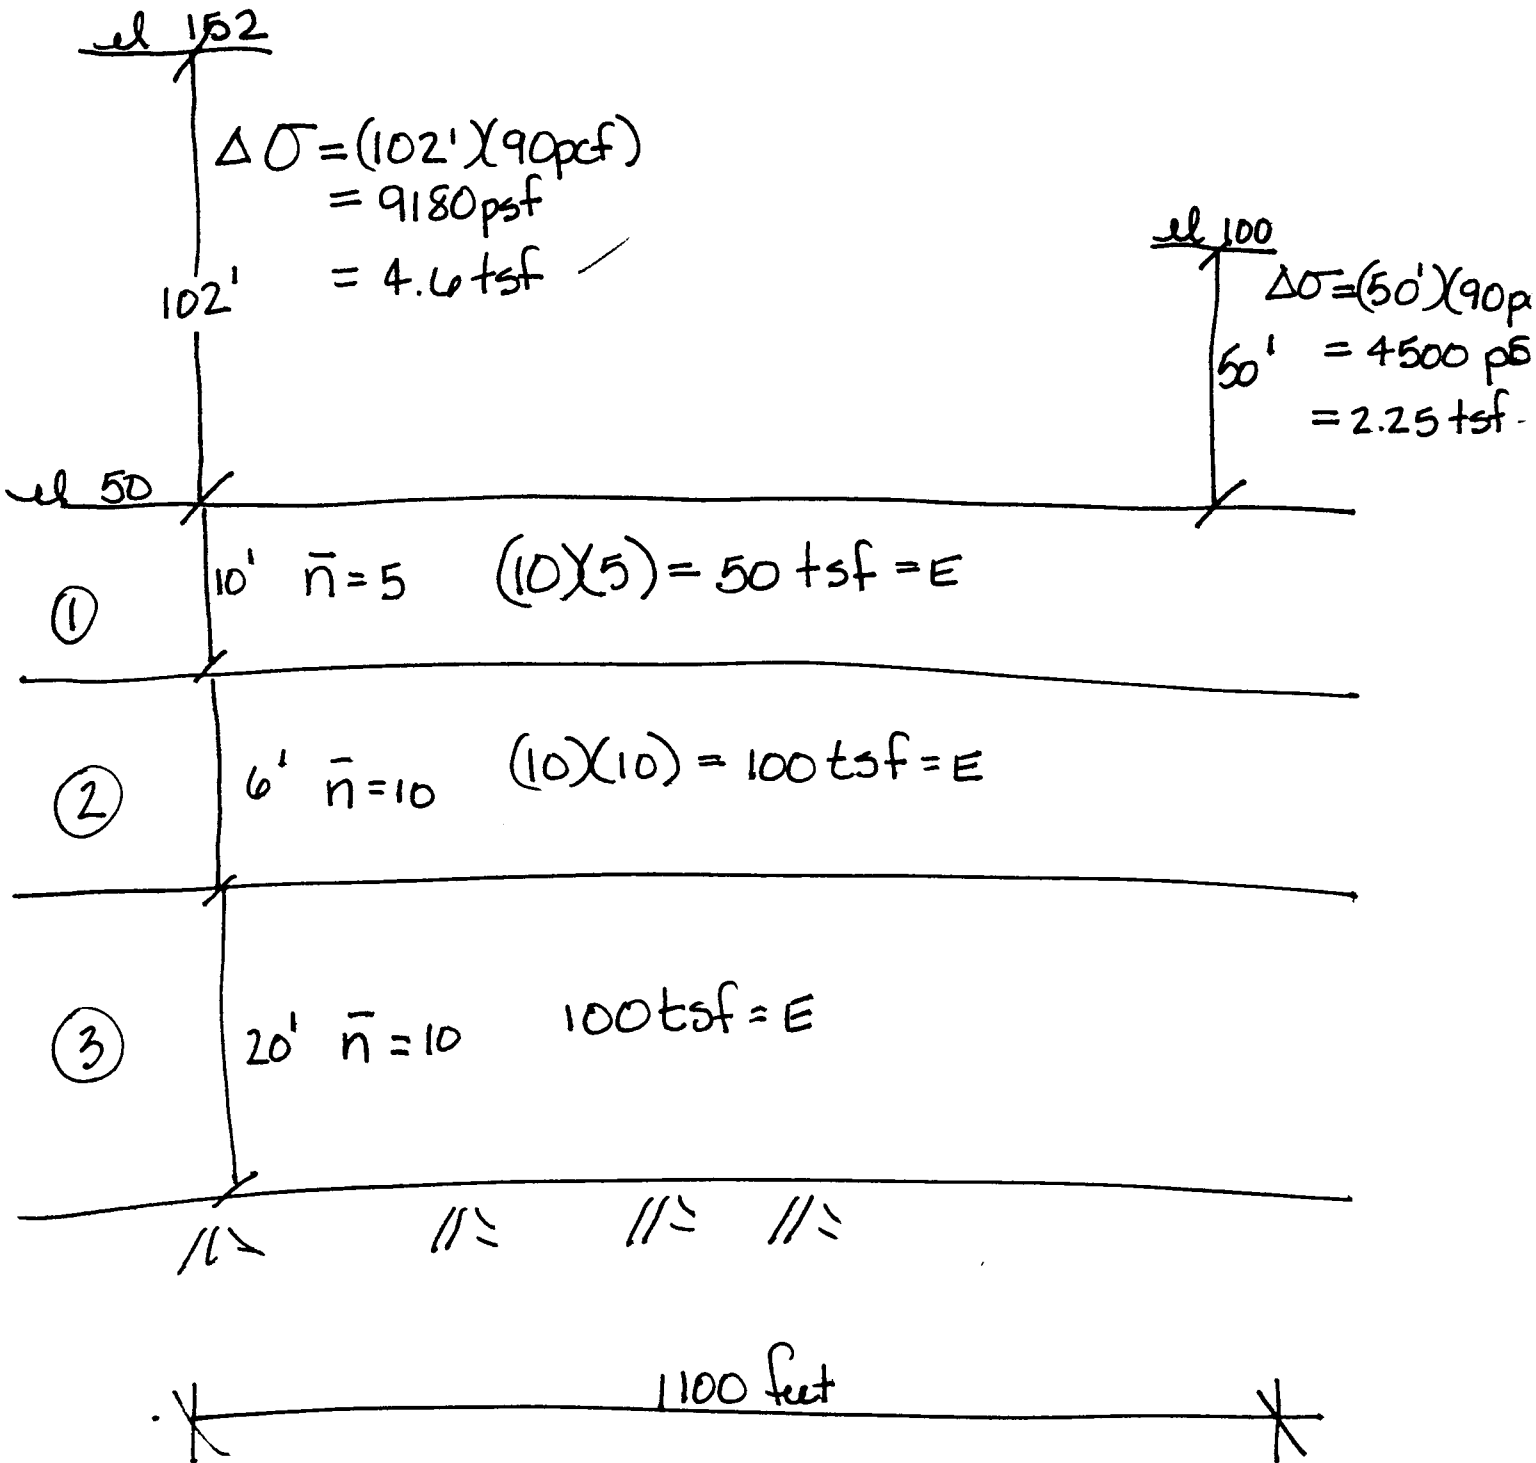 el 152
Δσ=(102')(90pcf)
= 9180psf
= 4.6 tsf
102'
el 100
Δσ=(50')(90p
= 4500 ps
= 2.25 tsf
50'
el 50
① 10' n̄=5 (10)(5)= 50 tsf = E
② 6' n̄=10 (10)(10) = 100 tsf = E
③ 20' n̄=10 100 tsf = E
1100 feet